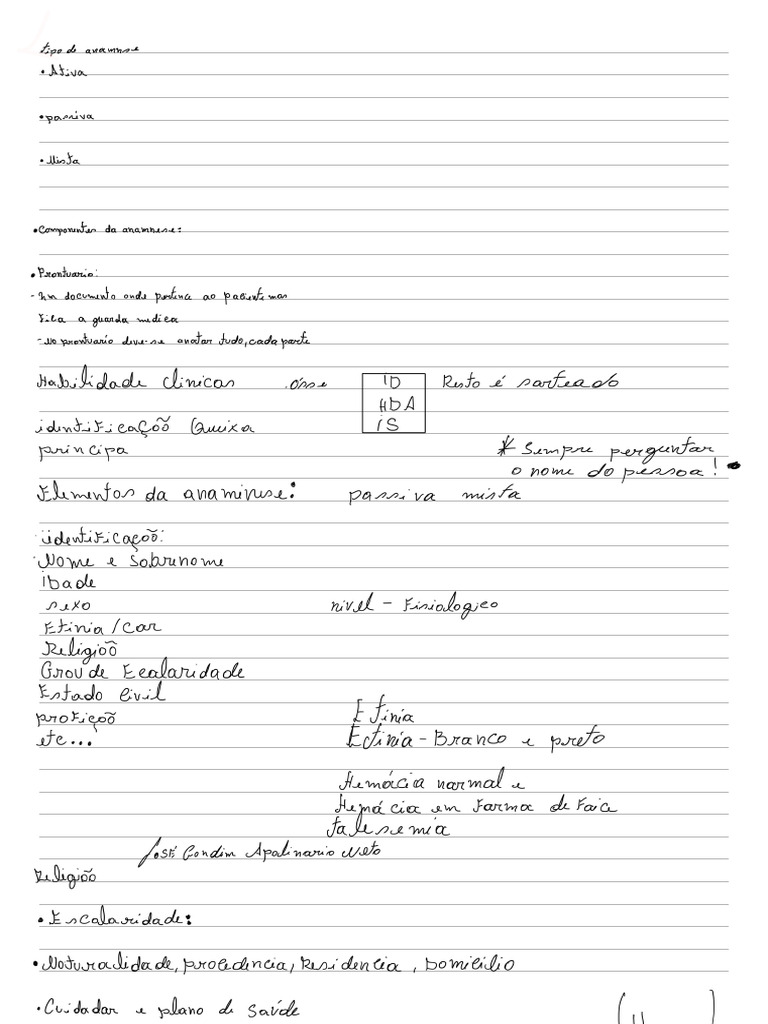 tipo de anamnse
• Ativa
• passiva
• Mista
• Componentes da anamnese:
• Prontuario:
- Um documento onde pertence ao paciente mas
fica a guarda medica
- No prontuario deve-se anotar tudo, cada parte
Habilidade clinicas .osse ID Resto é sorteado
HDA
identificaçoõ Queixa iS
principa * Sempre perguntar
o nome do pessoa!
Elementos da anaminese: passiva mista
identificaçoõ:
Nome e Sobrenome
ibade
sexo nivel - Fisiologico
Etinia/Cor
Religioõ
Grou de Ecalaridade
Estado Civil
profiçoõ Etinia
etc... Ectinia - Branco e preto
Hemácia normal e
Hemácia em Forma de Foice
falsemia
José Gondim Apolinario Neto
Religioõ
• Escalaridade:
• Noturalidade, procedencia, Residencia, Domicilio
• Cuidadar e plano de saúde